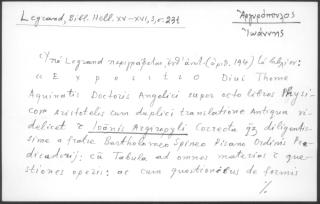 Legrand, Bibl. Hell. XV-XVI, 3, σ. 231
Ἀργυρόπουλος
Ἰωάννης
Legrand περιγράφεται, (ὁ.π. 194) τὸ βιβλίον:
« E x p o s i t i o Divi Thome
Aquinatis Doctoris Angelici super octo libros Physi-
cor Aristotelis cum duplici translatione Antiqua vi-
delicet & Ioānis Argiropyli Correcta qz diligentis-
sime a fratre Bartholameo Spineo Pisano Ordinis Pre-
dicatorū; cū Tabula ad omnes materias & que-
stiones operis: ac cum questionibus de formis
%